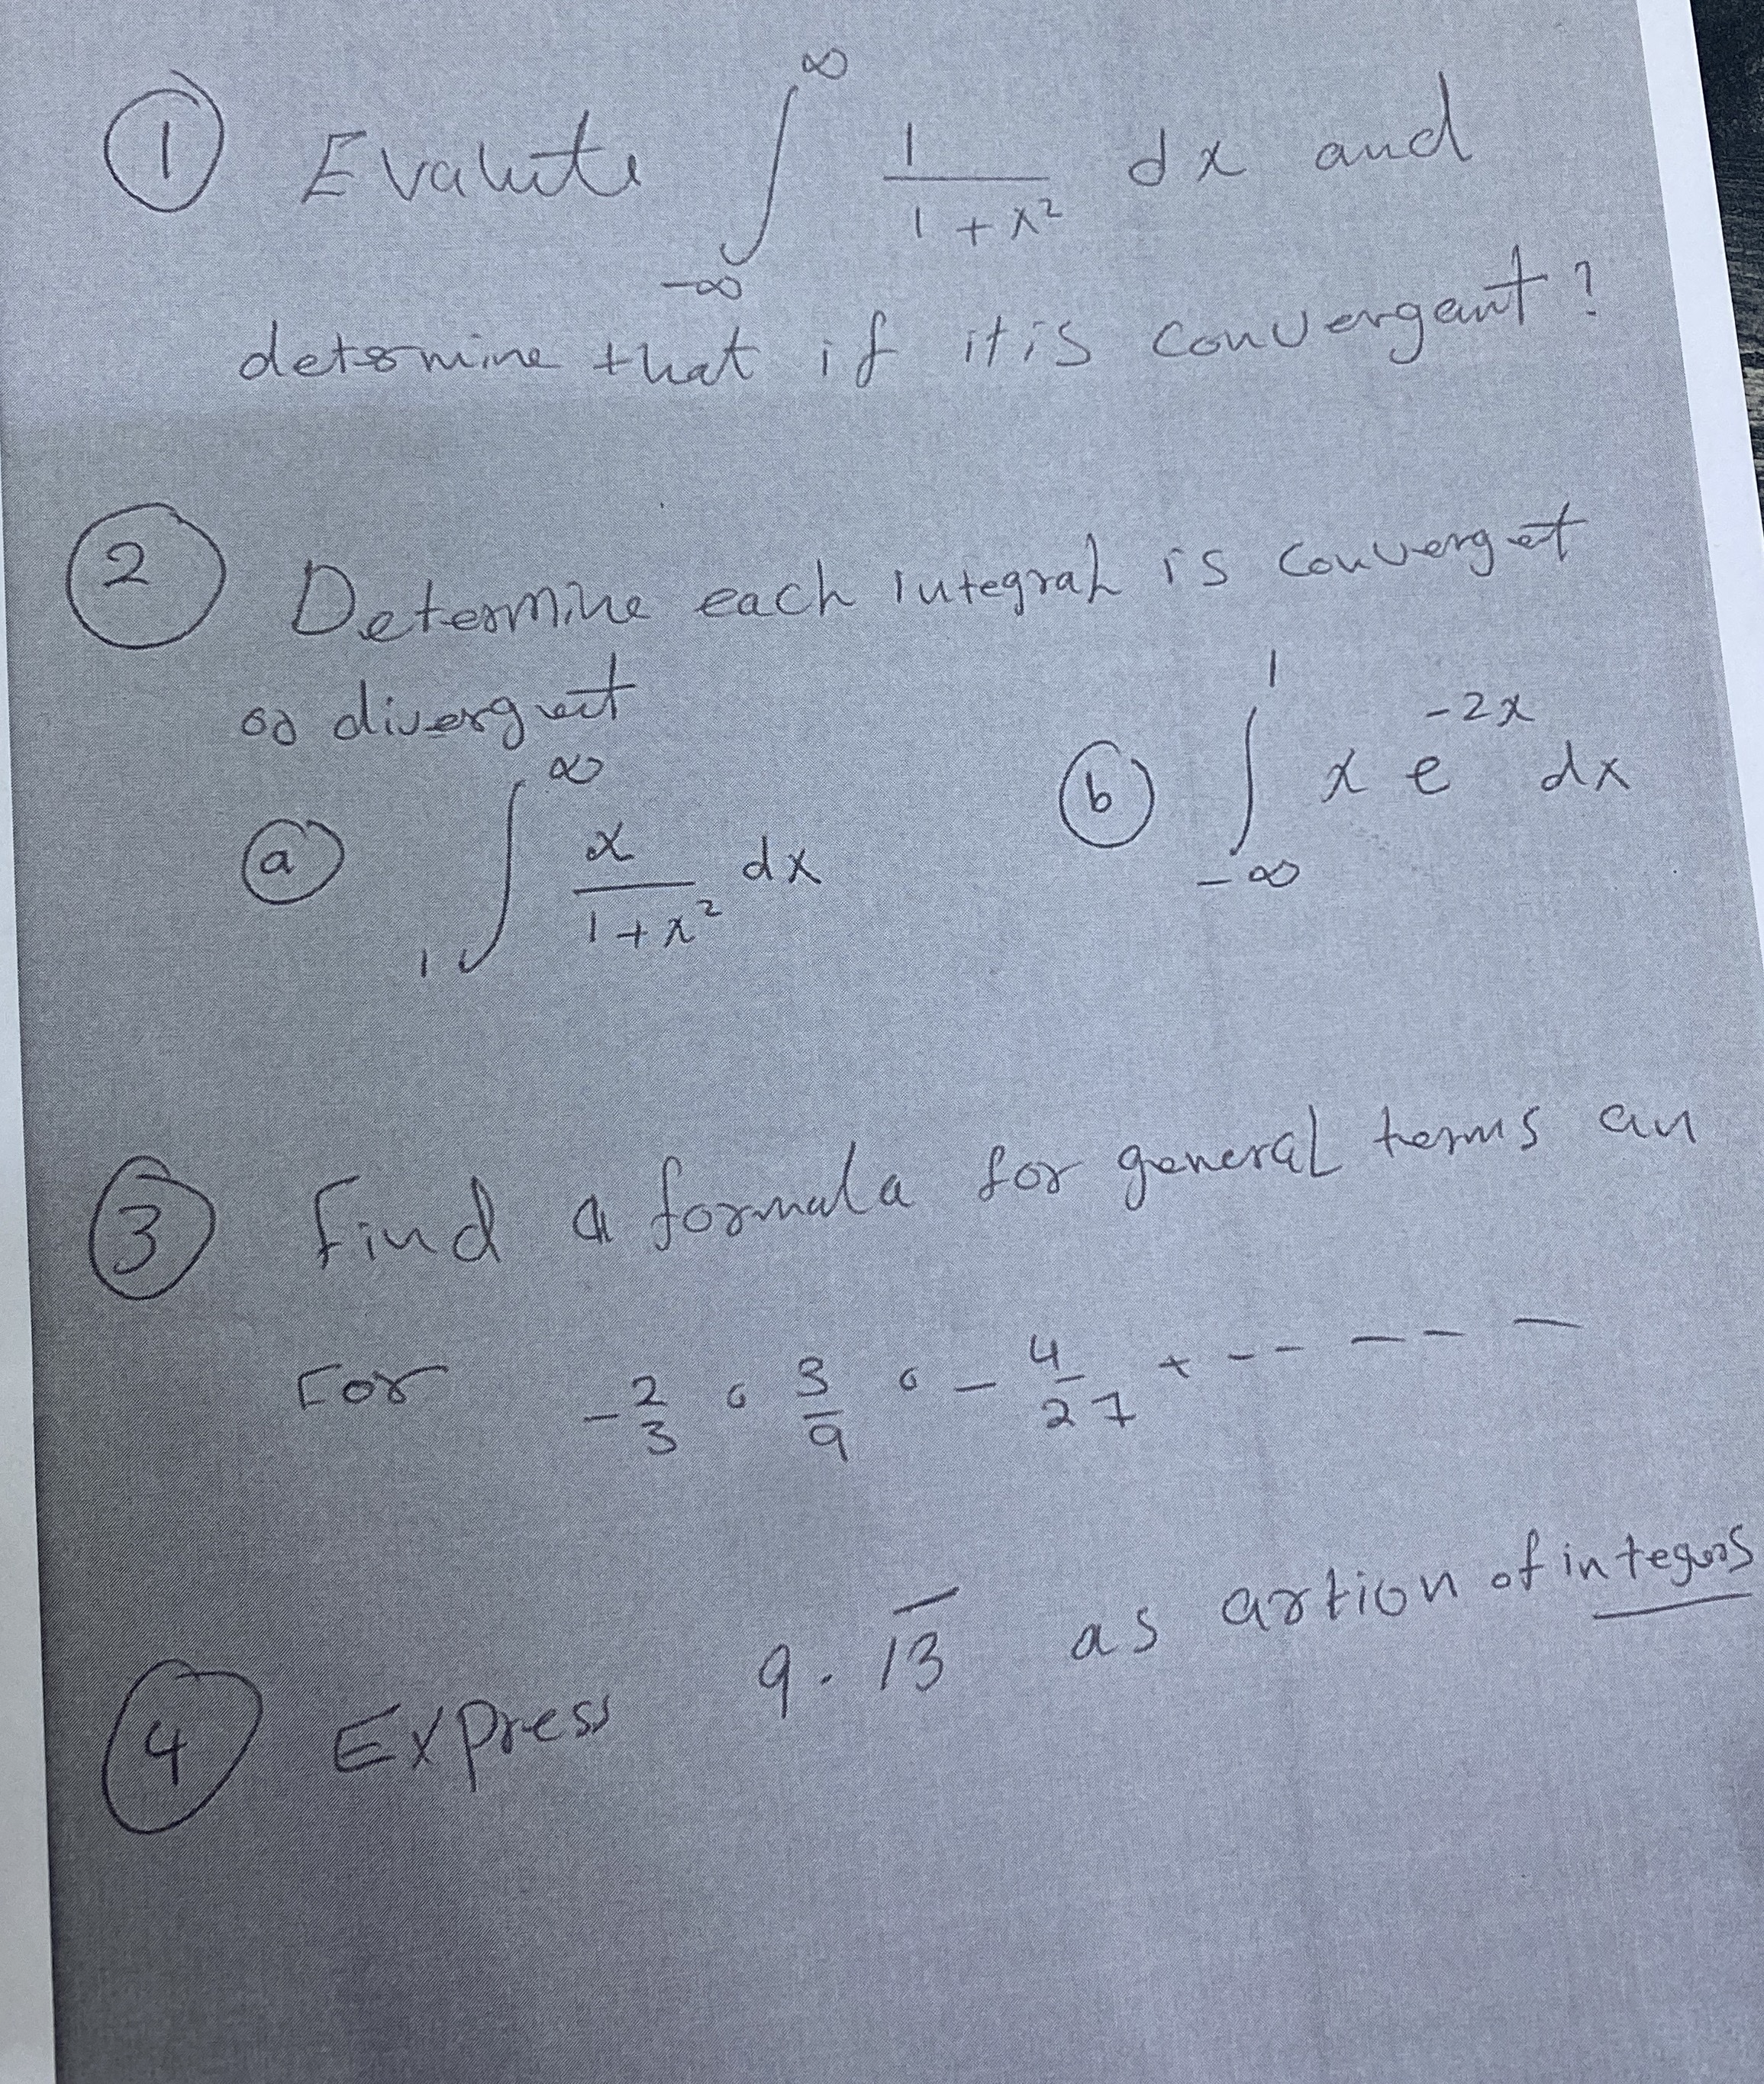 ① Evalute ∫_{-∞}^{∞} 1/(1+x²) dx and
determine that if it is convergent?
② Determine each integral is converget
or divergent
ⓐ ∫_{1}^{∞} x/(1+x²) dx ⓑ ∫_{-∞}^{1} x e^{-2x} dx
③ Find a formula for general terms an
For -2/3 , 3/9 , -4/27 + - - - - -
④ Express 9.1̅3̅ as artion of integers